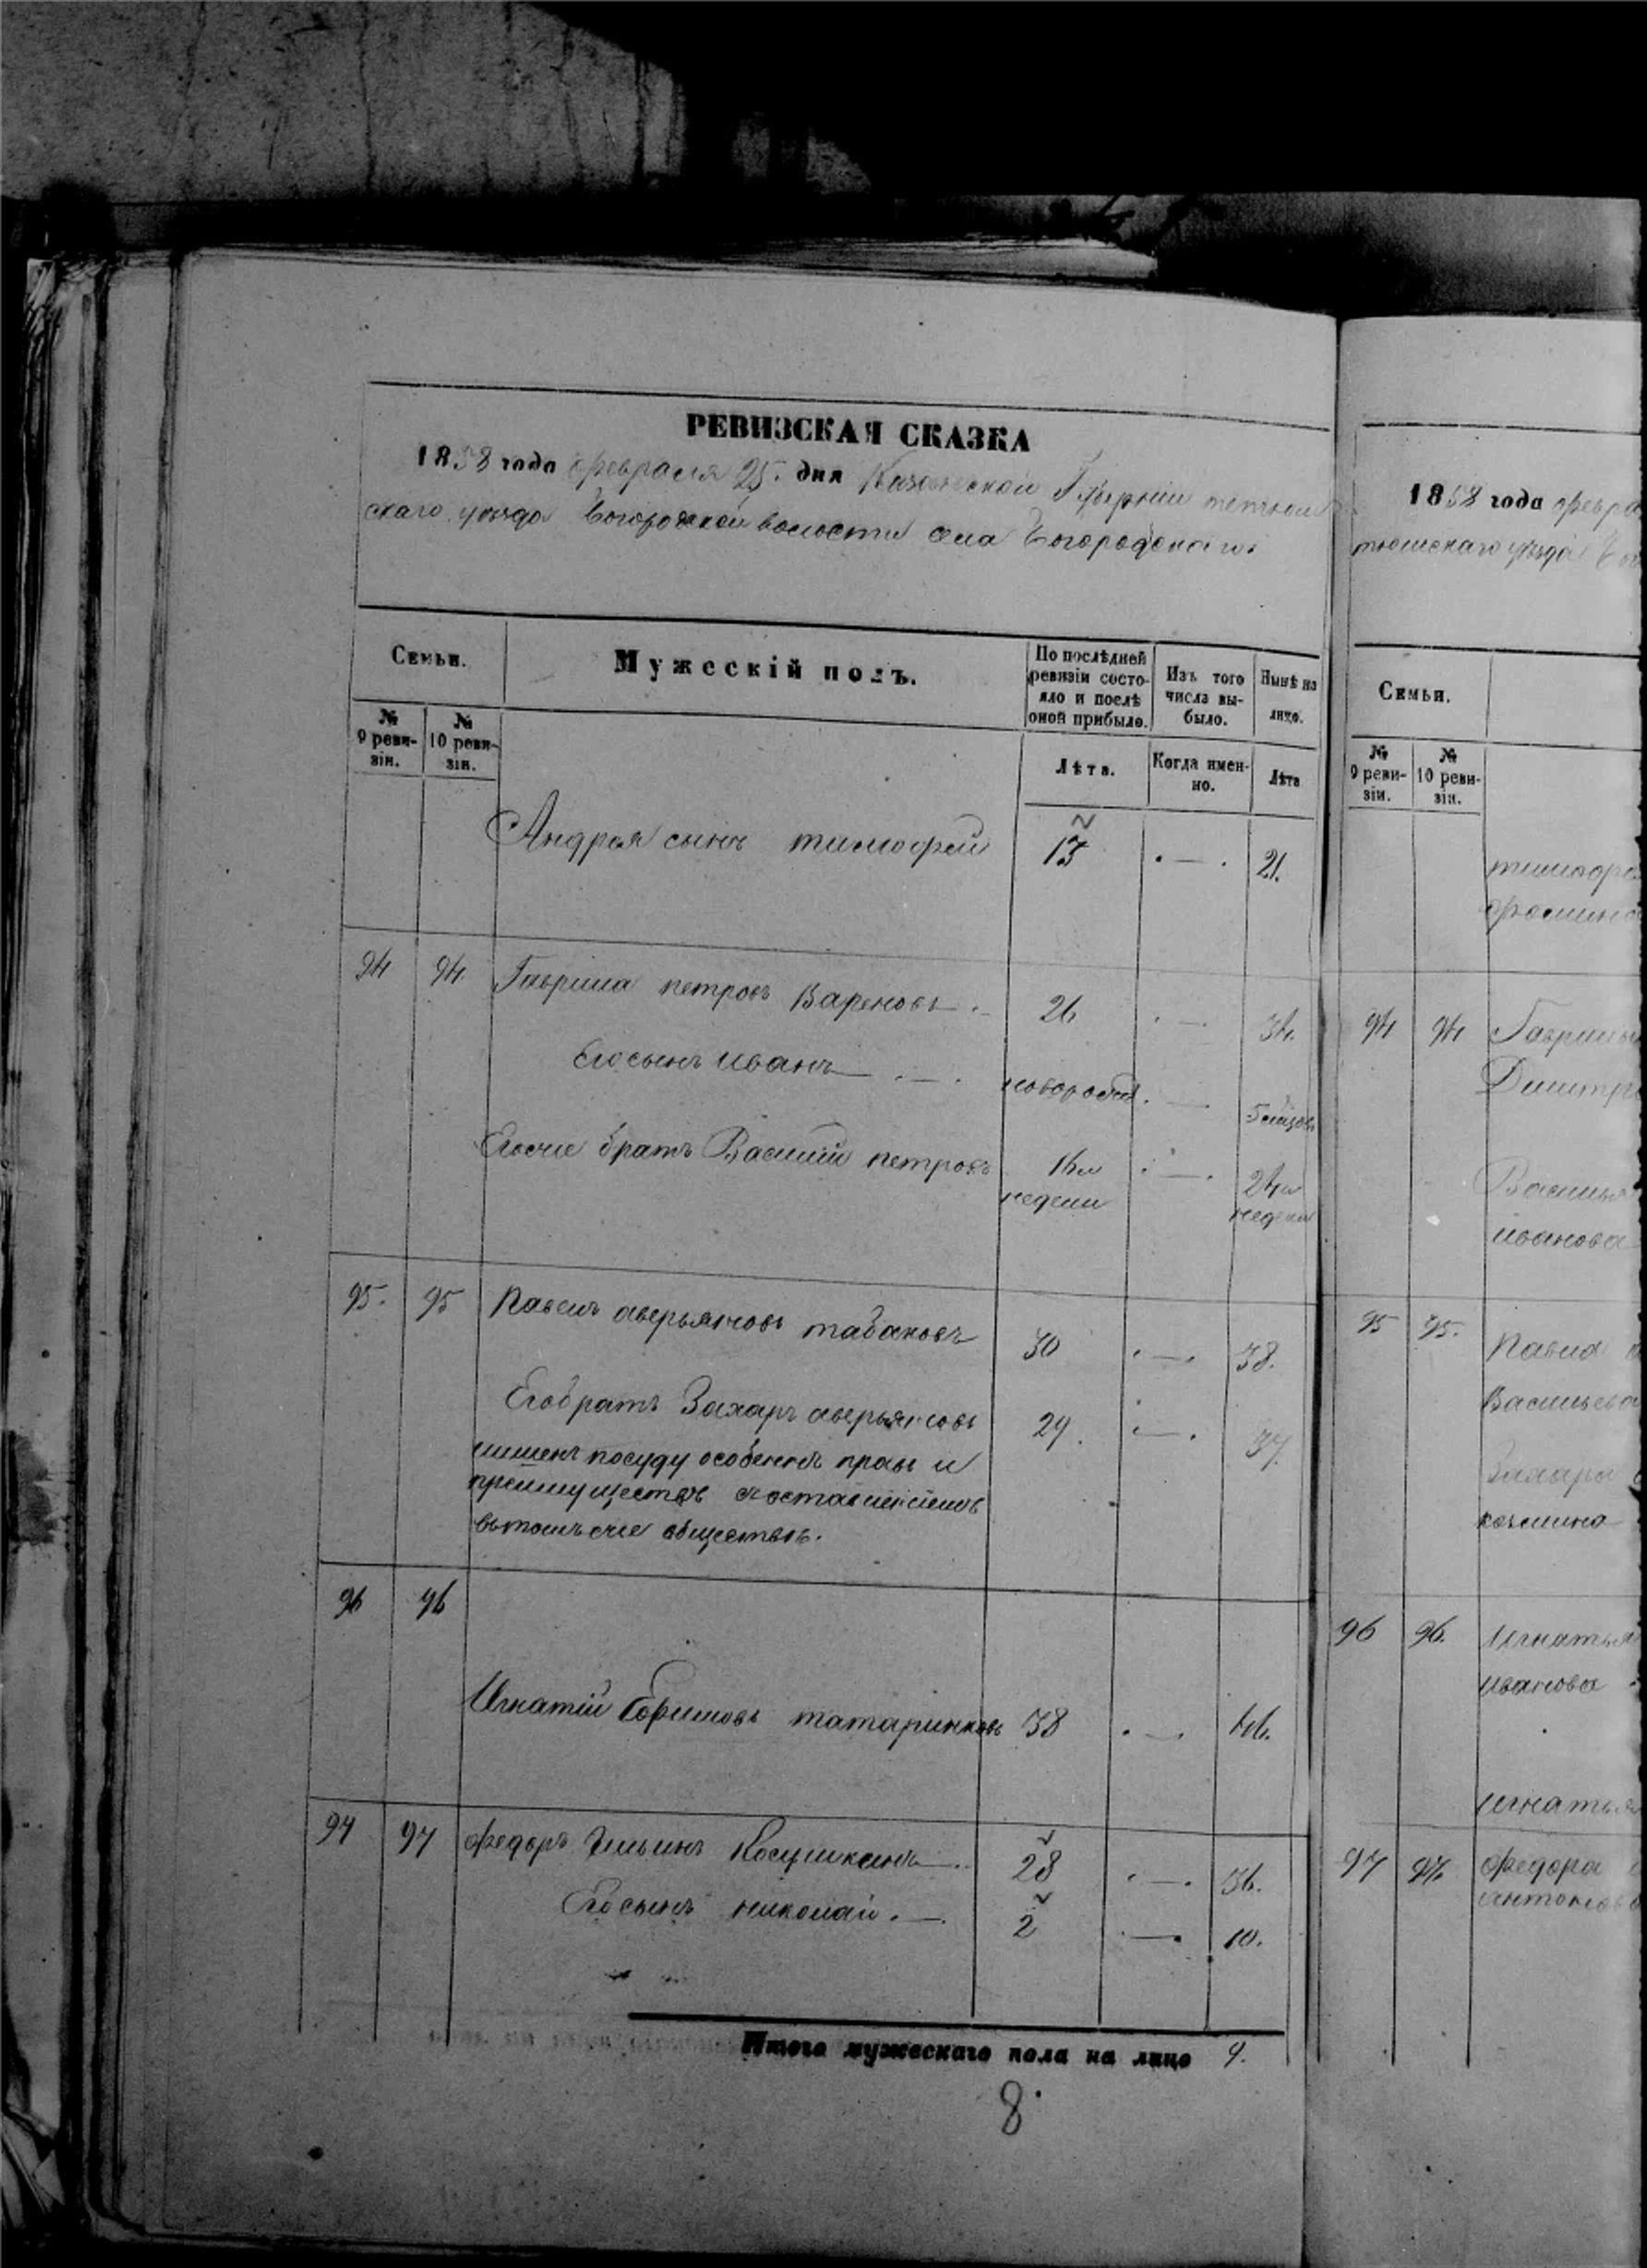 РЕВИЗСКАЯ СКАЗКА
1858 года февраля 25. дня Казанской Губерніи тетюш
скаго уѣзда Богородской волости села Богородскаго
Семьи.
Мужескій полъ.
По послѣдней ревизіи состояло и послѣ оной прибыло.
Изъ того числа выбыло.
Нынѣ на лицо.
№ 9 ревизіи.
№ 10 ревизіи.
Лѣта.
Когда именно.
Лѣта
Андрея сынъ тимофей 13 21.
94 94. Гаврила петровъ Вареновъ 26 34.
Его сынъ иванъ новорожд. 5 мѣцов.
Его же братъ Василий петровъ 16ти недели 24ти недели
95. 95 Павелъ аверьяновъ табаковъ 30 38.
Его братъ Захаръ аверьяновъ 29. 37.
лишенъ по суду особенныхъ правъ и
преимуществъ
въ томъ же обществѣ.
96 96
Игнатій Ефимовъ татаринковъ 38 46.
97 97 федоръ Ильинъ Косушкинъ 28 36.
Его сынъ николай 2 10.
Итого мужескаго пола на лицо 9.
8.
1858 года февра
тюшскаго уѣзда Бо
Семьи.
№ 9 ревизіи.
№ 10 ревизіи.
тимофе
фомина
94 94 Гаврилы
Дмитри
Василья
иванова
95 95. Павла
Васильева
Захара
козмина
96 96. Игнатья
иванова
игнатья
97 97. федора
антонова